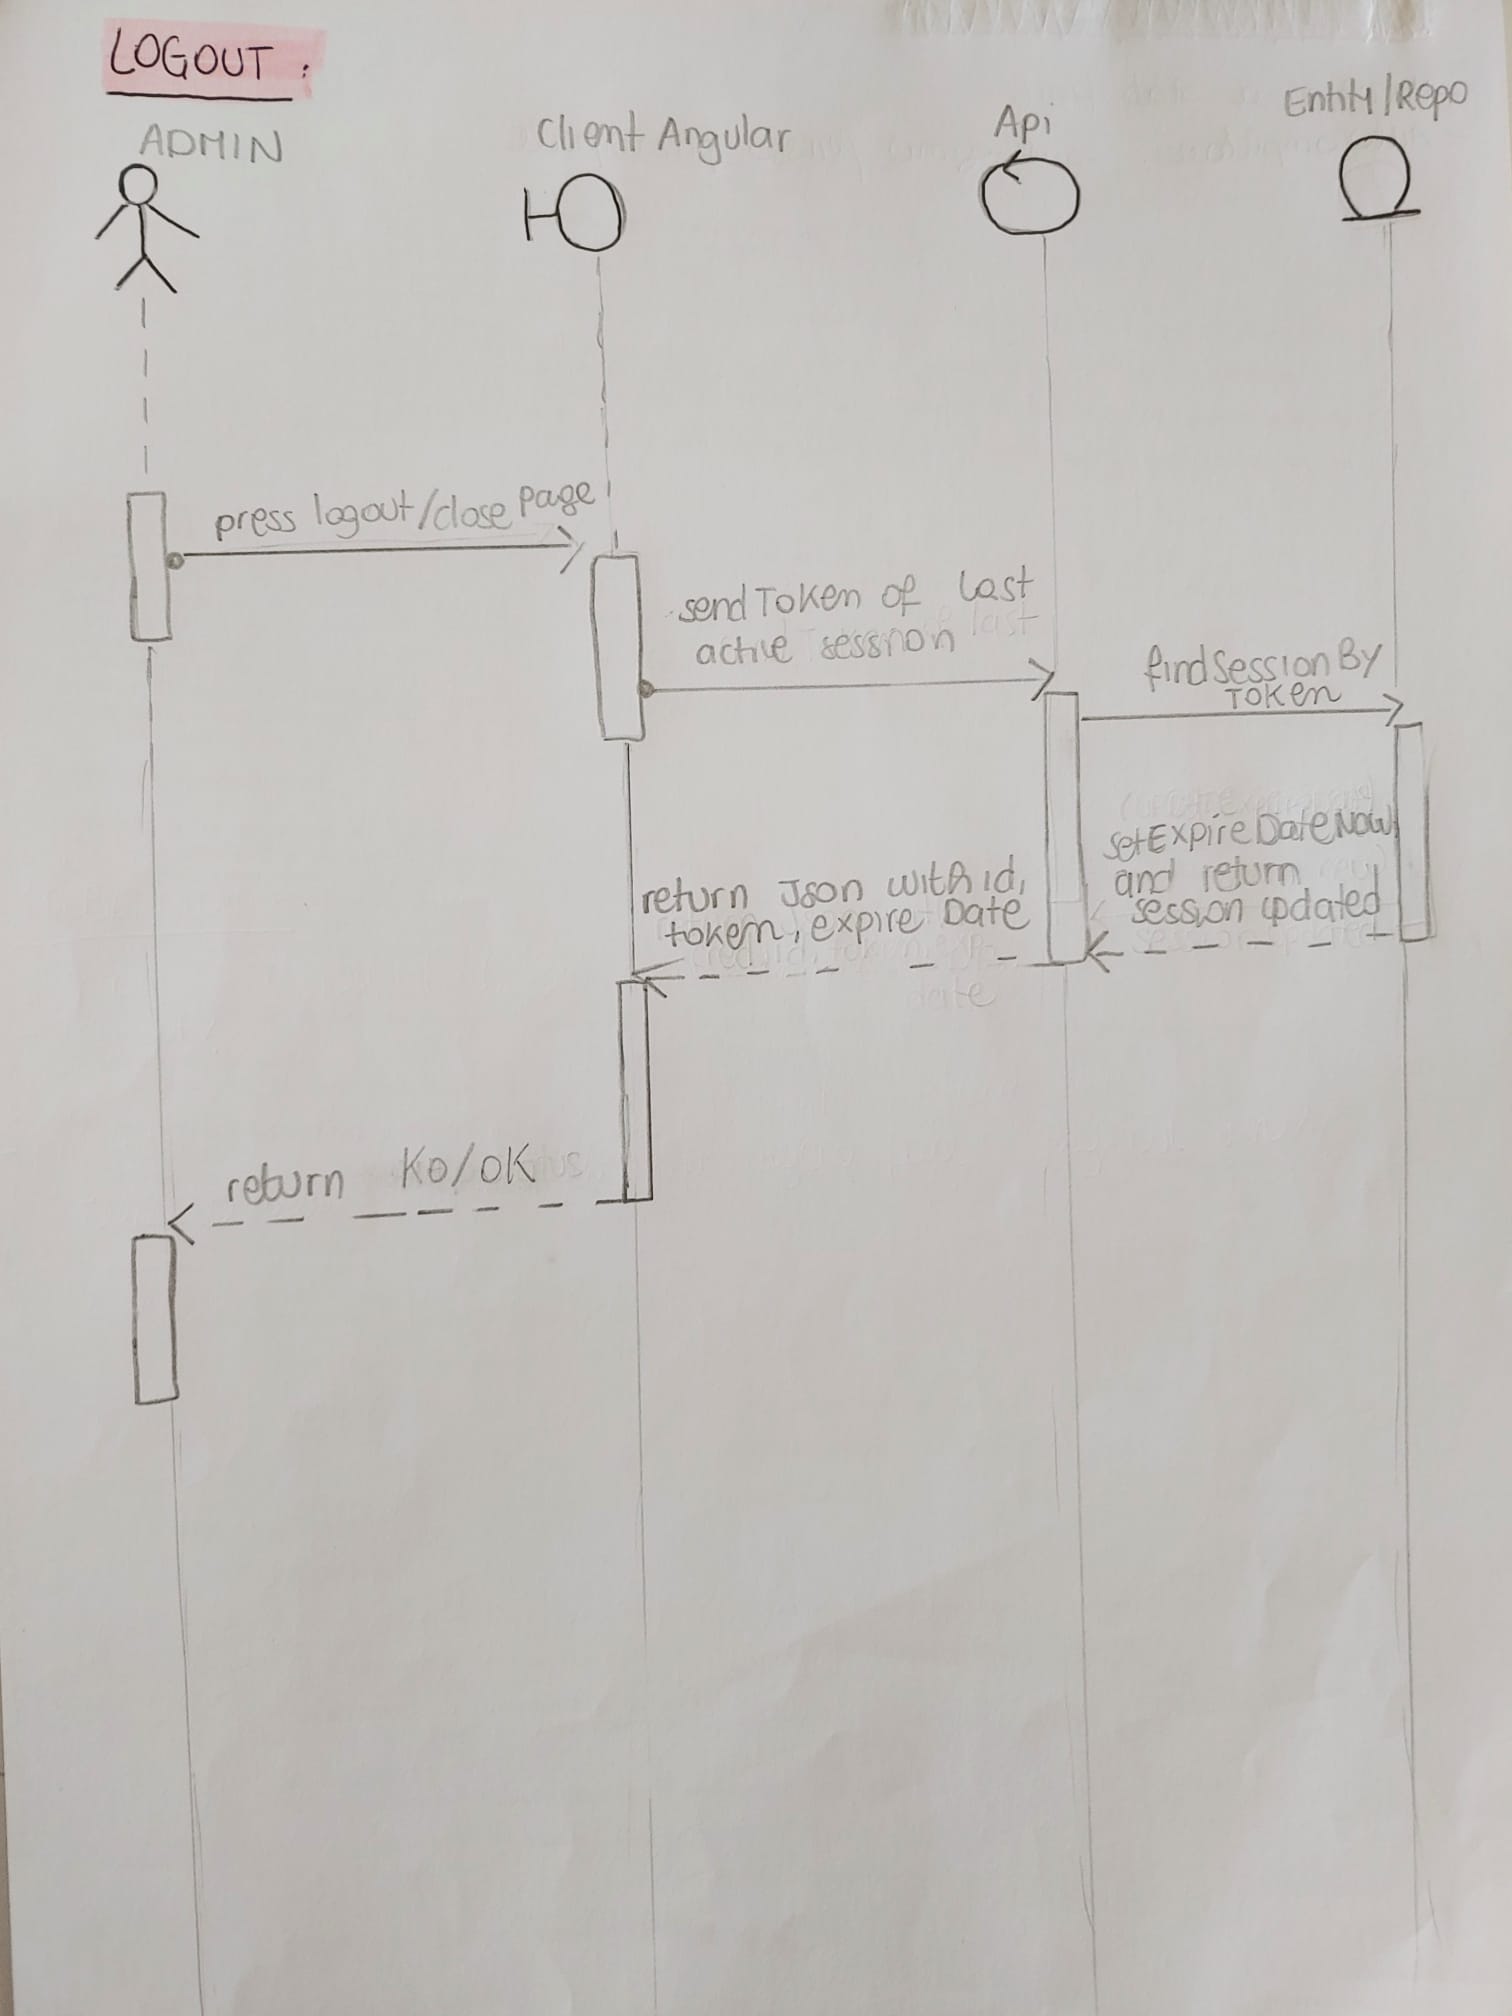 LOGOUT :
ADMIN
Client Angular
Api
Entity/Repo
press logout/close page
send Token of last
active session
findSessionBy
Token
setExpireDateNow
and return
session updated
return Json with id,
token, expire Date
date
return KO/OK